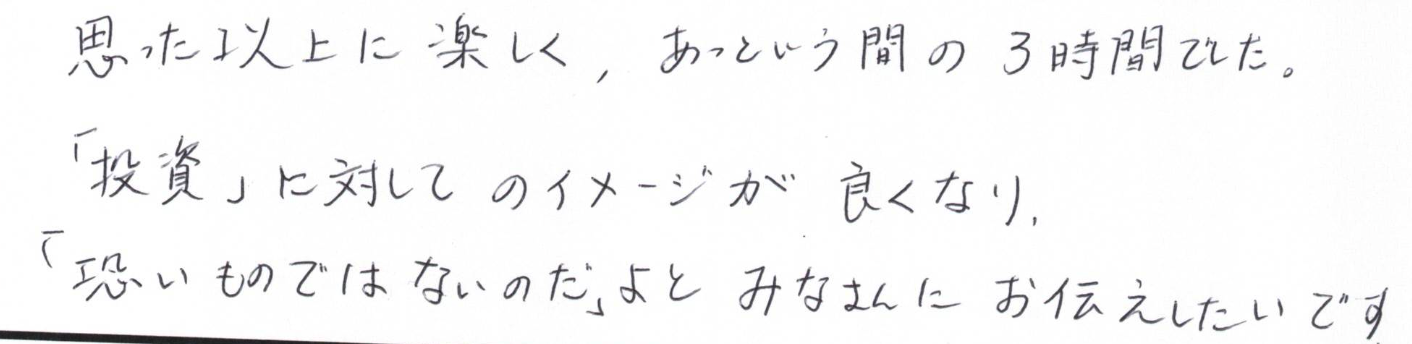 思った以上に楽しく，あっという間の3時間でした。
「投資」に対してのイメージが良くなり，
「恐いものではないのだ」よとみなさんにお伝えしたいです